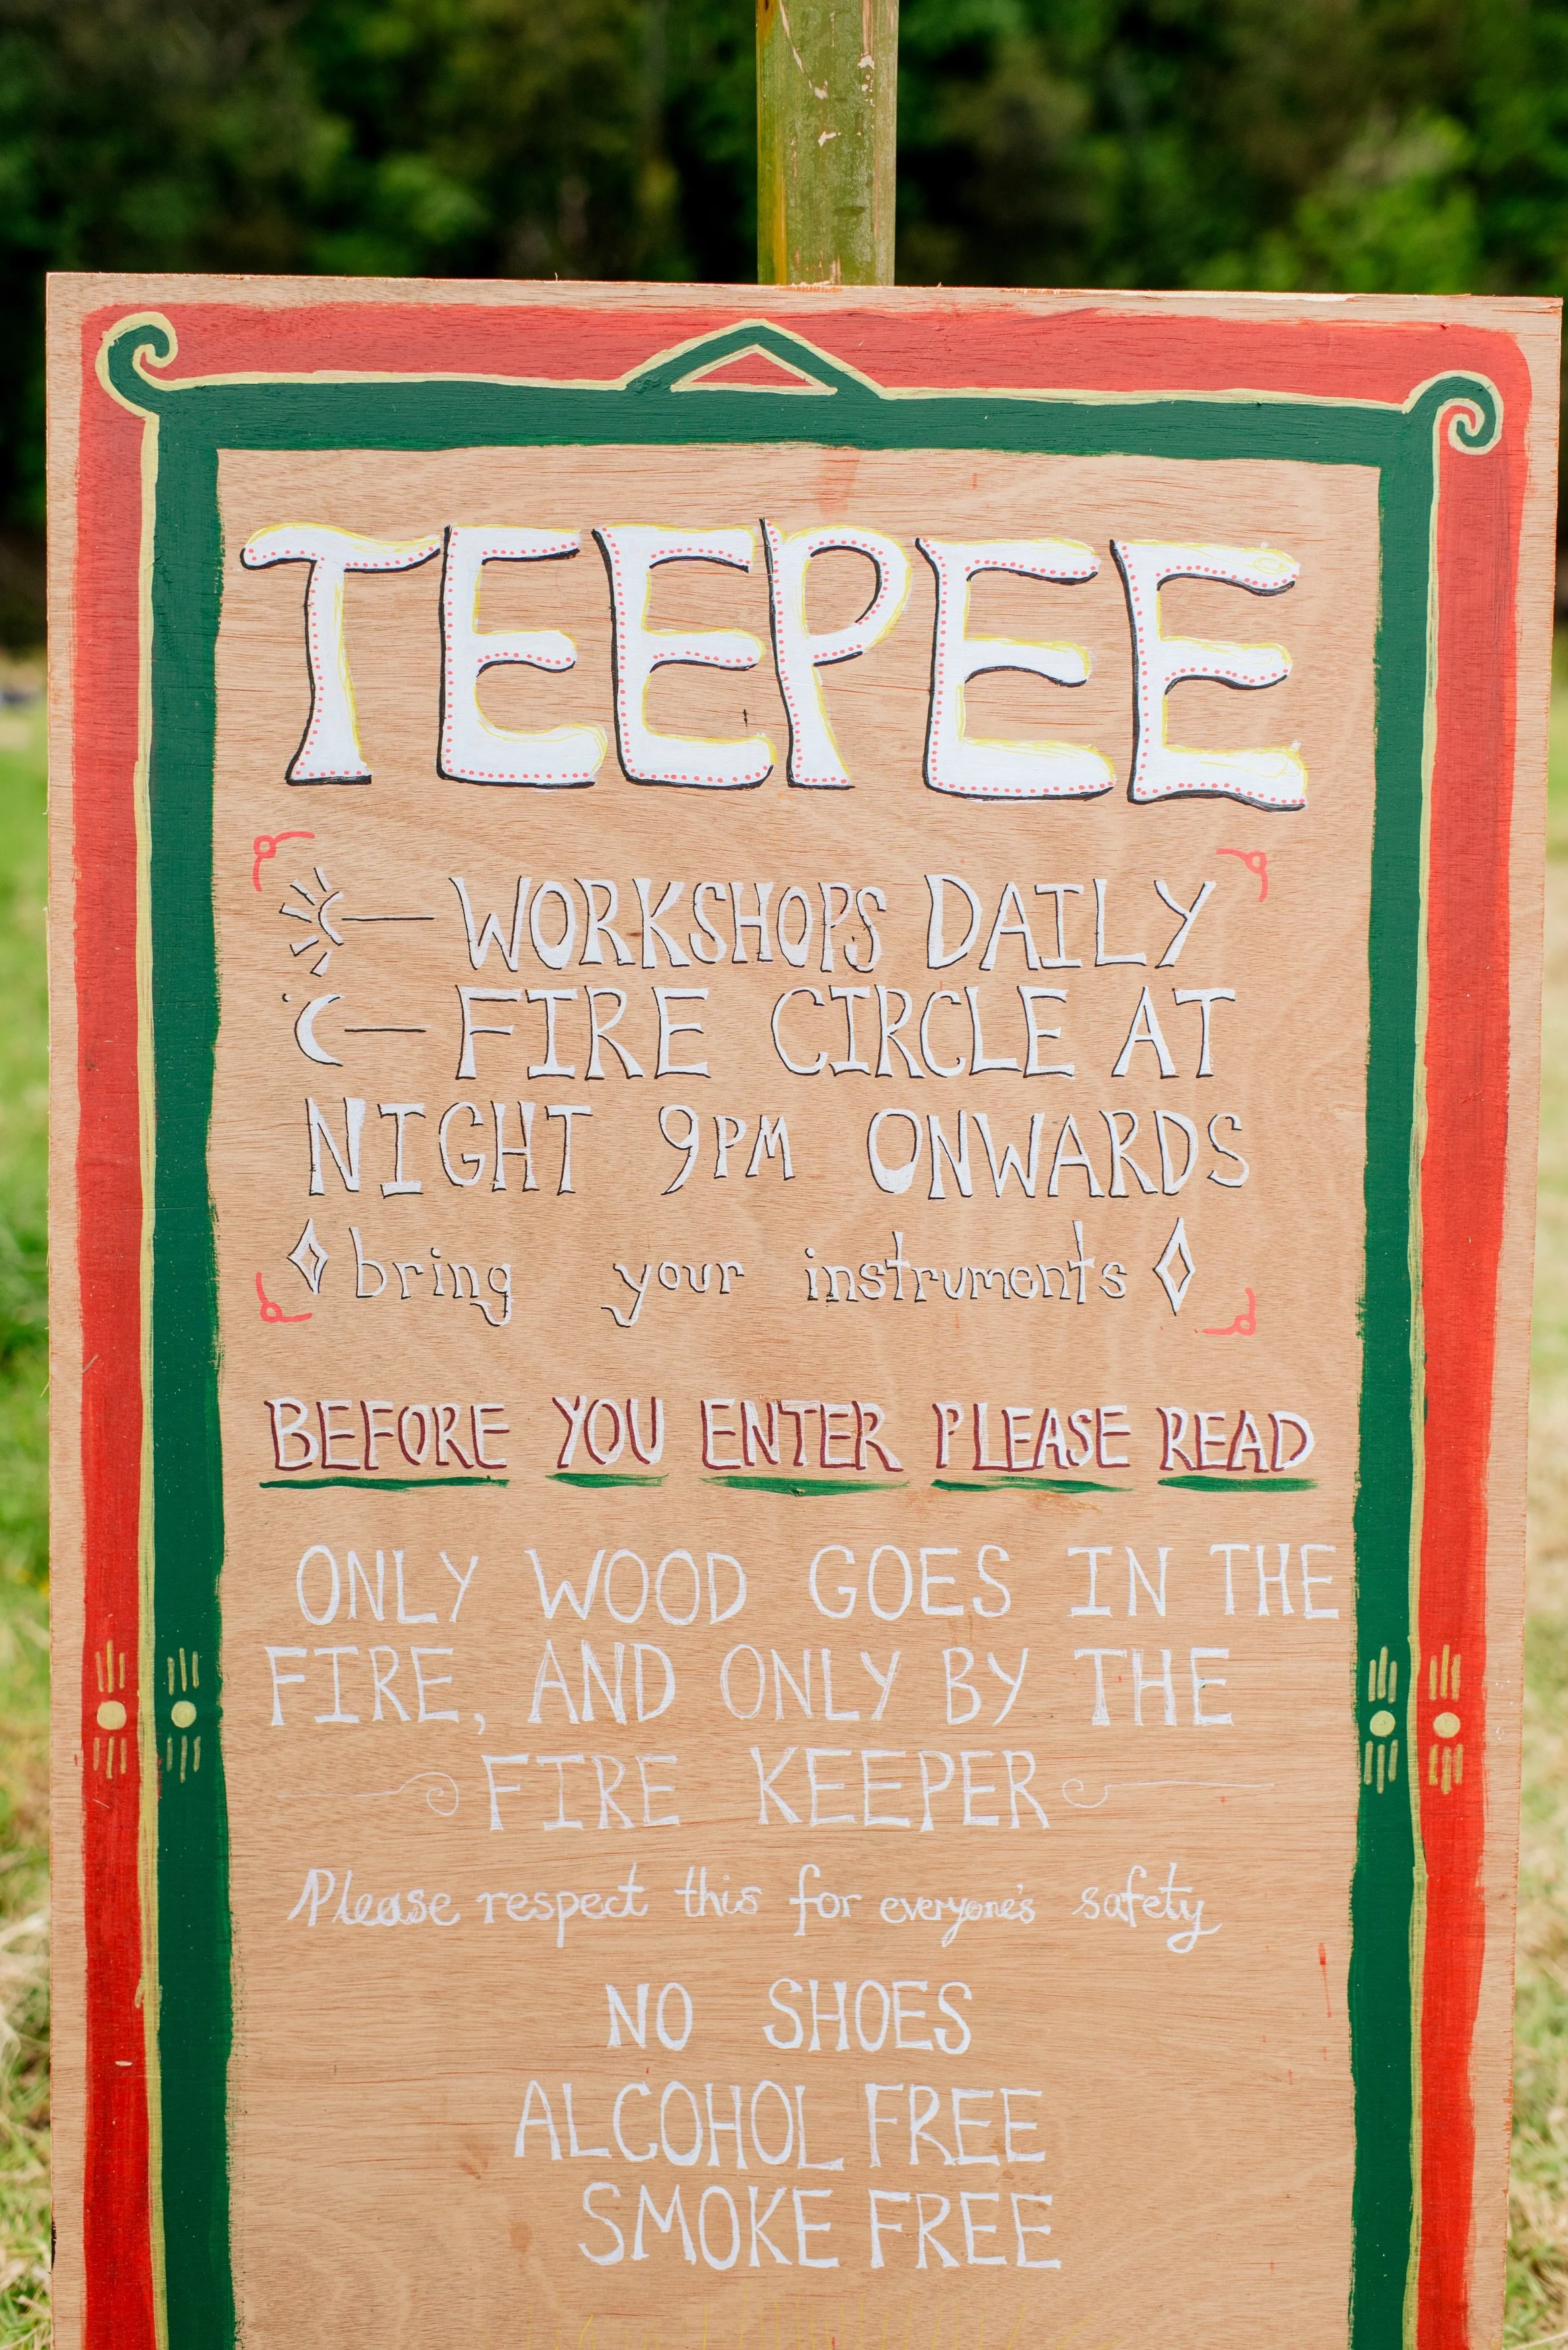 TEEPEE
WORKSHOPS DAILY
FIRE CIRCLE AT
NIGHT 9PM ONWARDS
bring your instruments
BEFORE YOU ENTER PLEASE READ
ONLY WOOD GOES IN THE
FIRE, AND ONLY BY THE
FIRE KEEPER
Please respect this for everyone's safety
NO SHOES
ALCOHOL FREE
SMOKE FREE